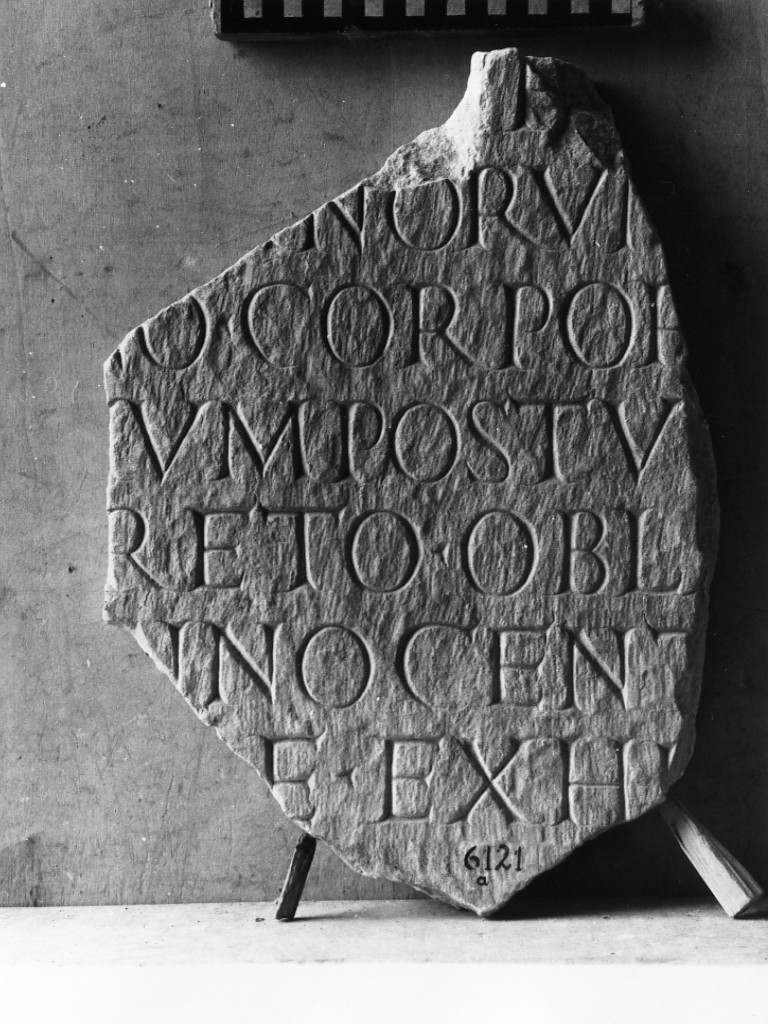 NORVM
O·CORPOR
VMPOSTV
RETO·OBL
INNOCENT
E·EXHI
6121
a